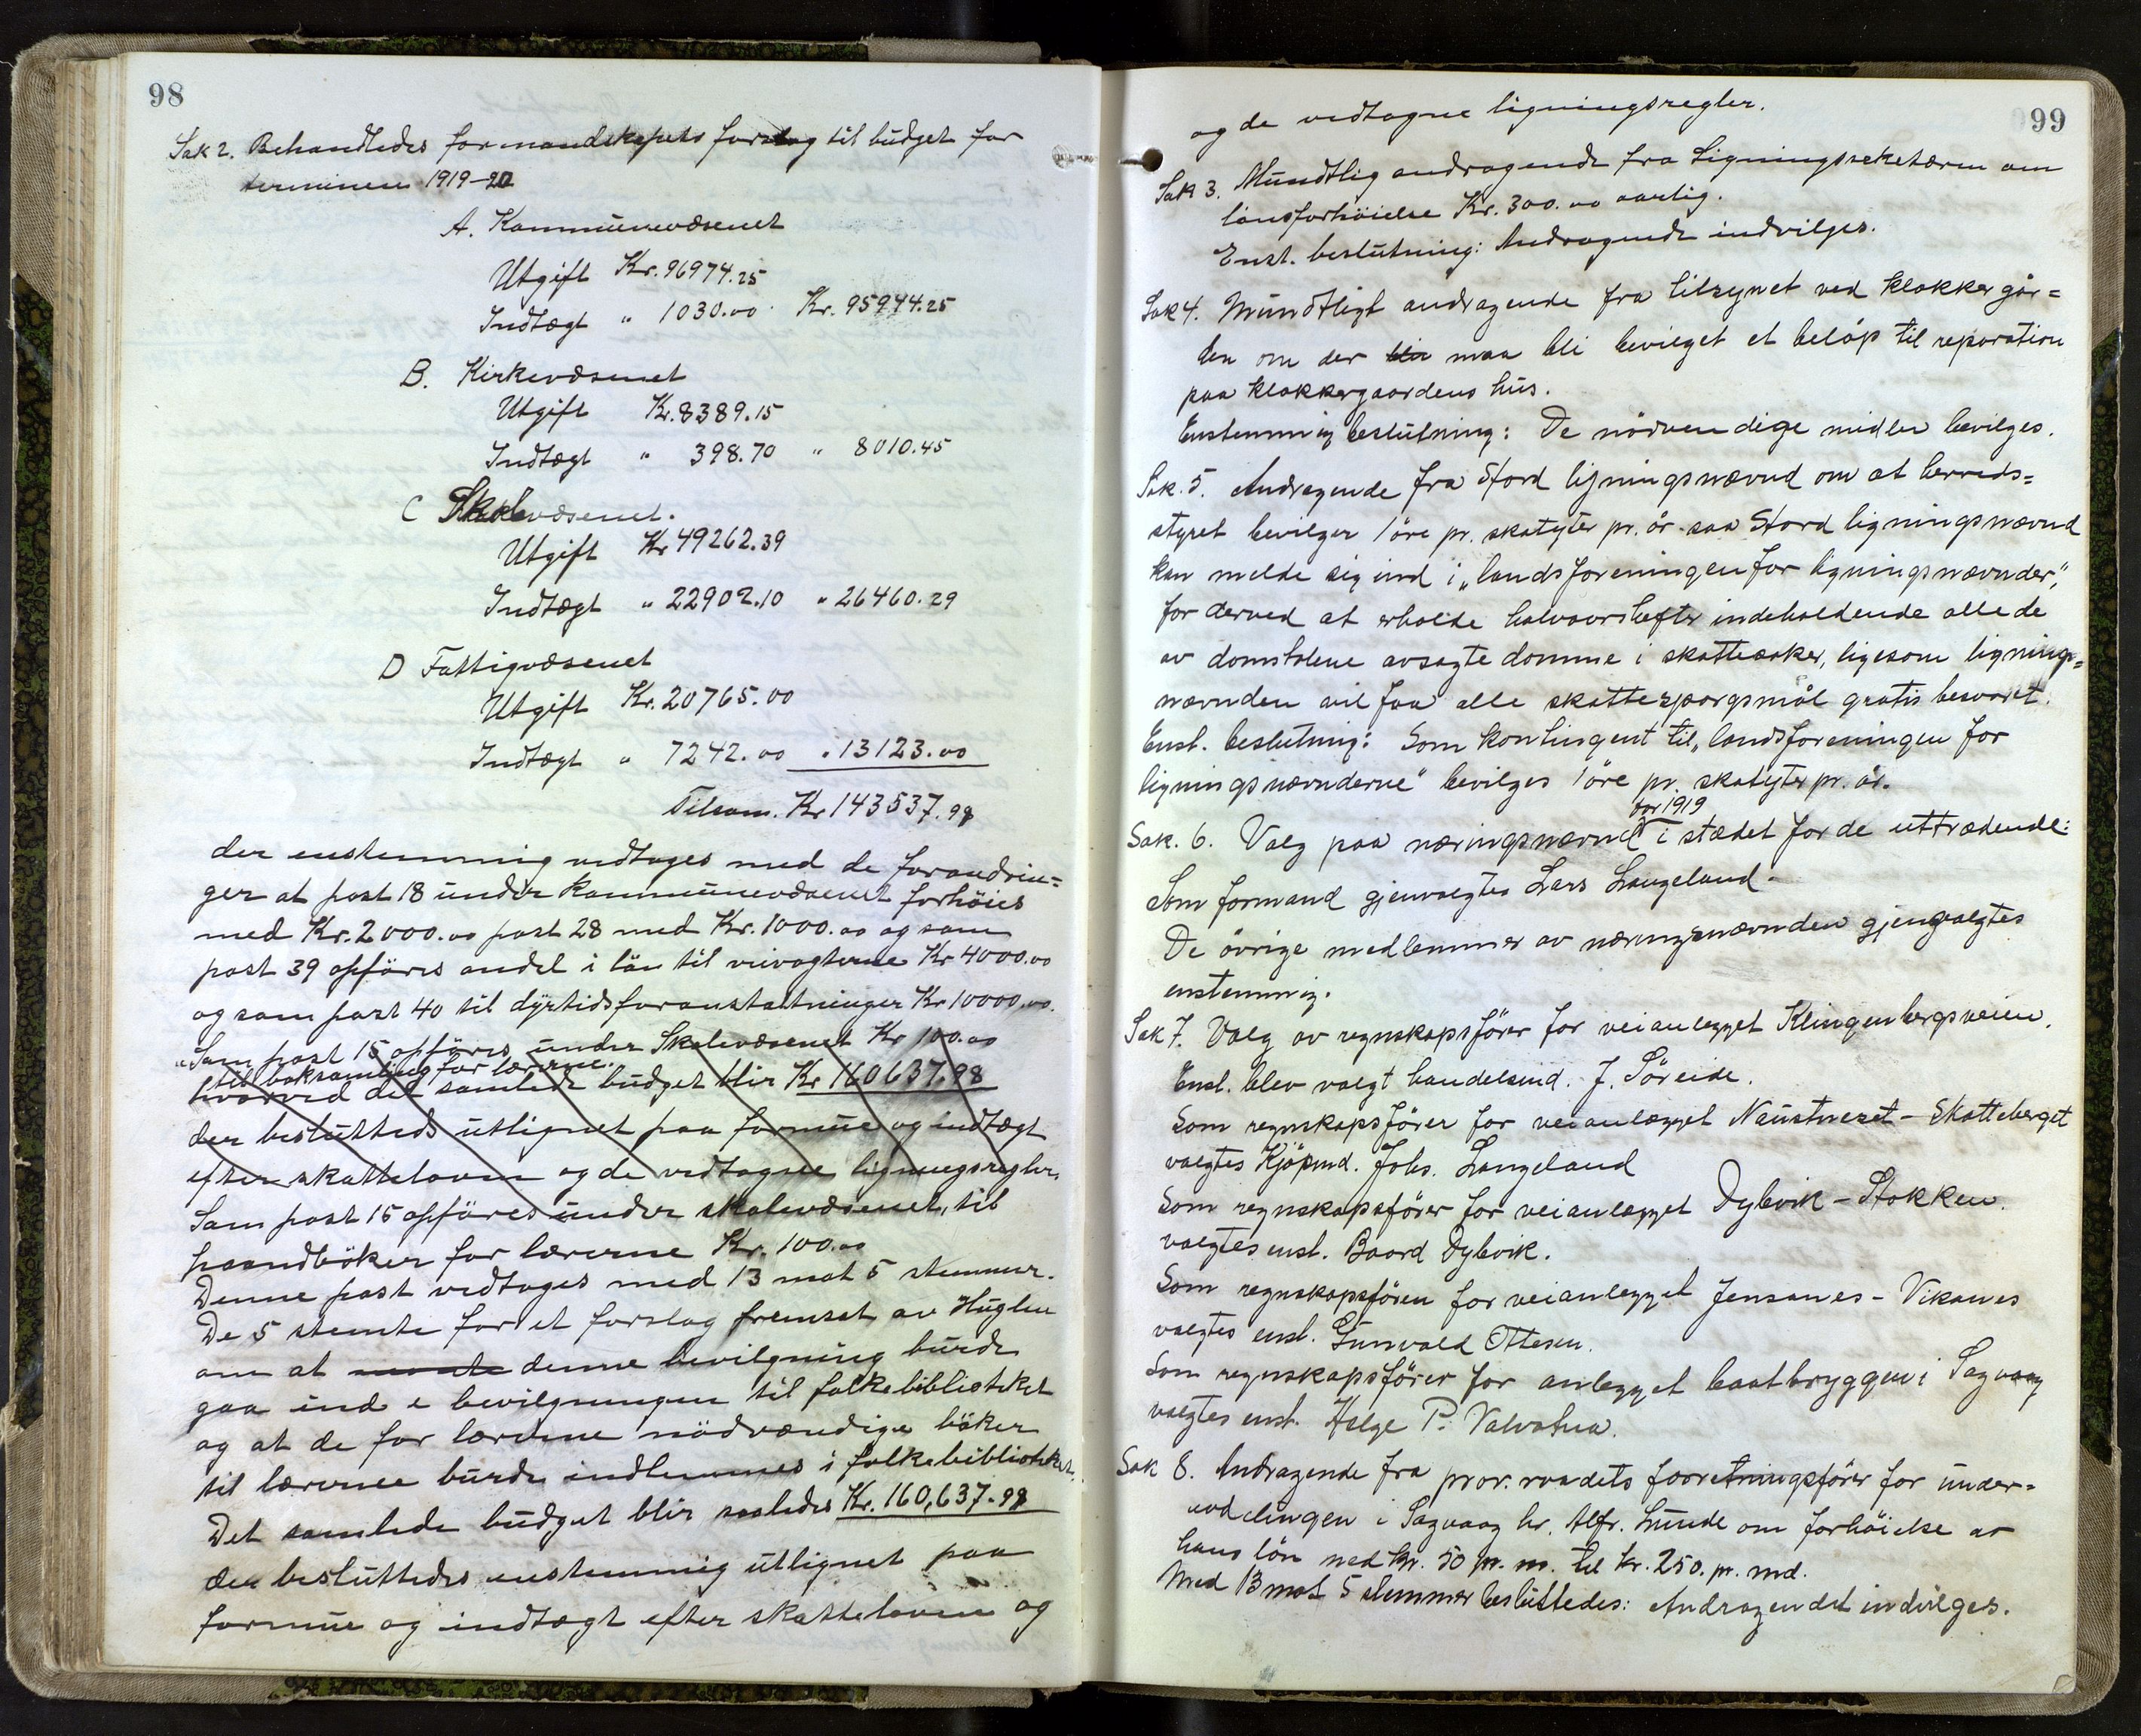 98
Sak 2. Behandledes formandskapets forslag til budget for
terminen 1919-20
A. Kommunevæsenet
Utgift Kr. 96974.25
Indtægt " 1030.00 Kr. 95944.25
B. Kirkevæsenet
Utgift Kr. 8389.15
Indtægt " 398.70 " 8010.45
C Skolevæsenet.
Utgift Kr 49262.39
Indtægt " 22902.10 " 26460.29
D Fattigvæsenet
Utgift Kr. 20765.00
Indtægt " 7242.00 " 13123.00
Tilsam. Kr 143537.98
der enstemmig vedtages med de forandrin=
ger at post 18 under kommunevæsenet forhöies
med Kr. 2000.00 post 28 med Kr. 1000.00 og som
post 39 opföres andel i lön til veivogterne Kr 4000.00
og som post 40 til dyrtidsforanstaltninger Kr 10000.00.
"Som post 15 opföres under Skolevæsenet Kr 100.00
til boksamling for lærerne.
hvorved det samlede budget blir Kr 160637.98
der besluttedes utlignet paa formue og indtægt
efter skatteloven og de vedtagne ligningsregler.
Som post 15 opföres under skolevæsenet, til
haandböker for lærerne Kr. 100.00
Denne post vedtages med 13 mot 5 stemmer.
De 5 stemte for et forslag fremsat av Huglen
om at denne bevilgning burde
gaa ind i bevilgningen til folkebiblioteket
og at de for lærerne nödvændige böker
til lærerne burde indlemmes i folkebiblioteket.
Det samlede budget blir saaledes Kr. 160,637.98
der besluttedes enstemmig utlignet paa
formue og indtægt efter skatteloven og
99
og de vedtagne ligningsregler.
Sak 3. Mundtlig andragende fra Ligningssekretæren om
lönsforhöielse Kr. 300.00 aarlig.
Enst. beslutning: Andragende indvilges.
Sak 4. Mundtligt andragende fra tilsynet ved klokkergår=
den om der blir maa bli bevilget et belöp til reparation
paa klokkergaardens hus.
Enstemmig beslutning: De nörvendige midler bevilges.
Sak. 5. Andragende fra Stord ligningsnævnd om at herreds=
styret bevilger 1 öre pr. skatyter pr. år saa Stord ligningsnævnd
kan melde sig ind i „landsforeningen for ligningsnævnder,"
for derved at erholde halvaarshefter indeholdende alle de
av domstolene avsagte domme i skattesaker, ligesom lignings=
nævnden vil faa alle skattespørgsmål gratis besvaret.
Enst. beslutning: Som kontingent til „landsforeningen for
ligningsnævnderne" bevilges 1 öre pr. skatyter pr. år.
for 1919
Sak. 6. Valg paa næringsnævnd i stædet for de uttrædende:
Som formand gjenvalgtes Lars Langeland.
De övrige medlemmer av næringsnævnden gjenvalgtes
enstemmig.
Sak 7. Valg av regnskapsförer for veianlegget Klingenbergsveien.
Enst. blev valgt handelsmd. J. Söreide.
Som regnskapsförer for veianlægget Naustneset - Skatteberget
valgtes Kjöpmd. Johs. Langeland
Som regnskapsförer for veianlegget Dybvik - Stokken.
valgtes enst. Baard Dybvik.
Som regnskapsförer for veianlegget Jensanes - Vikanes
valgtes enst. Gunvald Ottesen.
Som regnskapsförer for anlegget baatbryggen i Sagvaag
valgtes enst. Helge P. Valvatna.
Sak 8. Andragende fra prov. raadets forretningsförer for under=
avdelingen i Sagvaag hr. Alfr. Lunde om forhöielse av
hans lön med kr. 50 pr. m. til kr. 250. pr. md.
Med 13 mot 5 stemmer besluttedes: Andragendet indvilges.